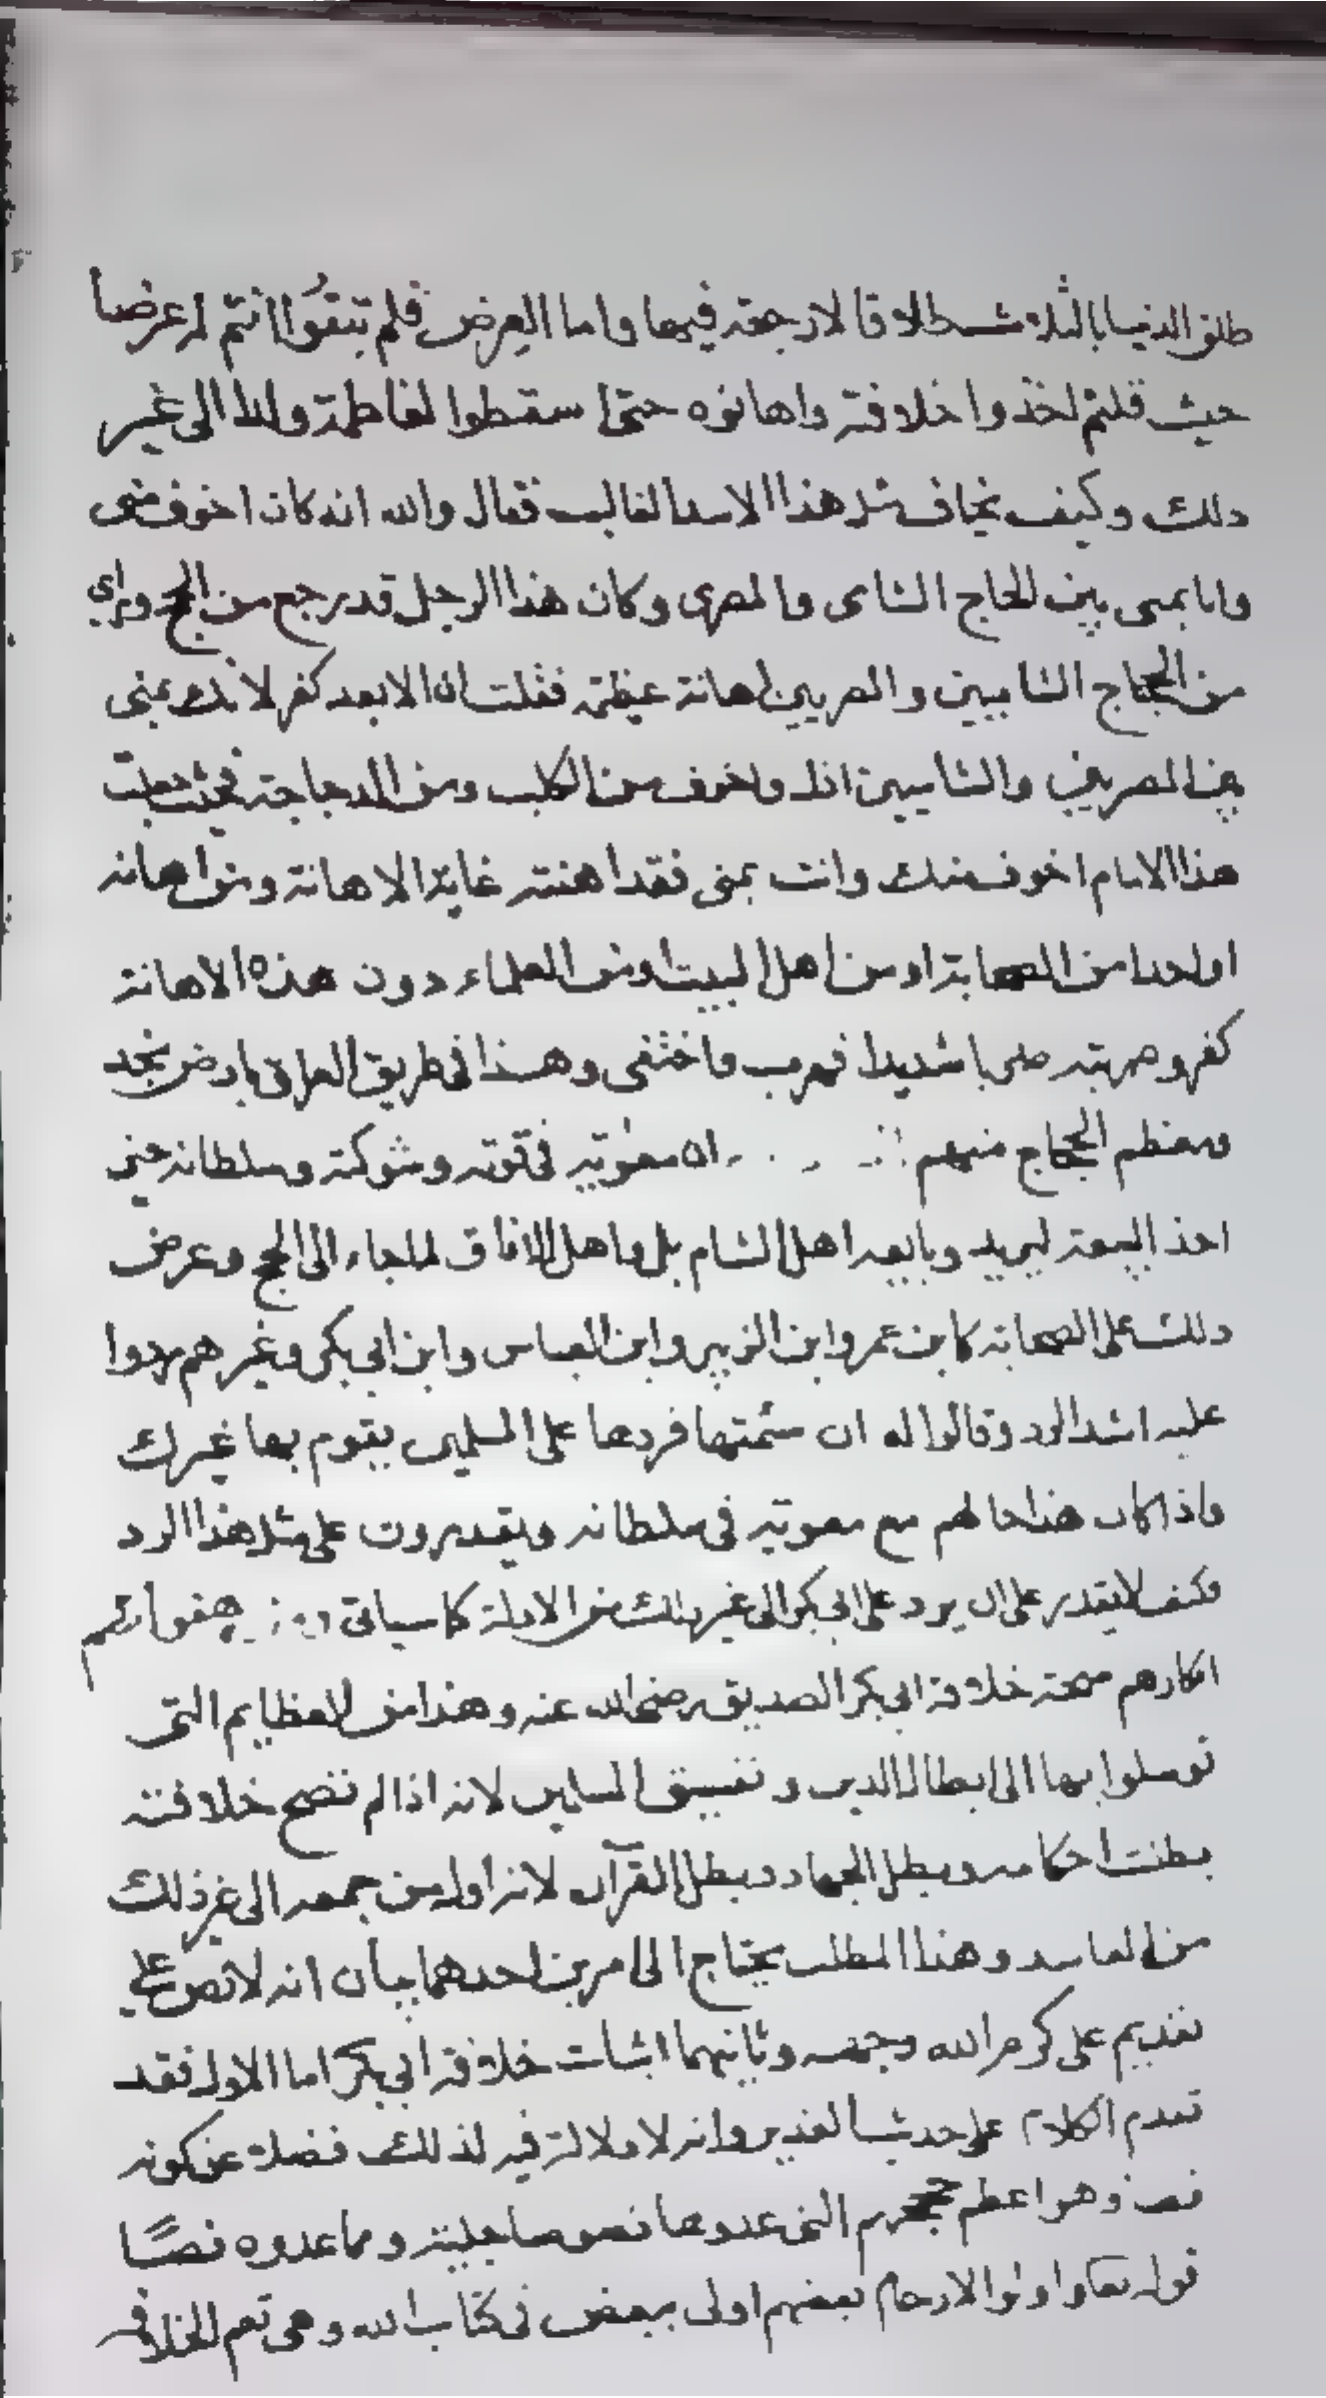 طلق الدنيا بالثلاث طلاقا لا رجعة فيها واما العرض فلم تبقوا انتم له عرضا
حيث قلتم اخذوا خلافته واهانوه حتى اسقطوا لفاطمة ولدا الى غير
ذلك وكيف يخاف مثل هذا الاسد الغالب فقال والله انه كان اخوف منى
وانا بمنى بين الحاج الشامى والمصرى وكان هذا الرجل قد رجع من الحج وراى
من الحجاج الشاميين والمصريين اهانة عظيمة فقلت ان الابعد كفر لانك بمنى
بين المصريين والشاميين اذل واخوف من الكلب ومن الدجاجة فحيث جعلت
هذا الامام اخوف منك وانت بمنى فقد اهنته غاية الاهانة ومن اهانه
او احدا من الصحابة او من اهل البيت او من العلماء دون هذه الاهانة
كفر وضربته ضربا شديدا فهرب واختفى وهذا فى طريق العراق بارض نجد
ومعظم الحجاج منهم ان معوية فى قوته وشوكته وسلطانه حين
اخذ البيعة ليزيد وبايعه اهل الشام بل واهل الافاق لما جاء الى الحج وعرض
ذلك على الصحابة كابن عمر وابن الزبير وابن العباس وابن ابى بكر وغيرهم ردوا
عليه اشد الرد وقالوا له ان سئمتها فردها على المسلمين يقوم بها غيرك
واذا كان هذا حالهم مع معوية فى سلطانه ويقدرون على مثل هذا الرد
فكيف لا يقدر على ان يرد على ابى بكر الى غير ذلك من الادلة كما سياتى هفواتهم
انكارهم صحة خلافة ابى بكر الصديق رضى الله عنه وهذا من العظايم التى
توسلوا بها الى ابطال الدين وتفسيق المسلمين لانه اذا لم تصح خلافته
بطلت احكامه وبطل الجهاد وبطل القرآن لانه اول من جمعه الى غير ذلك
من المفاسد وهذا المطلب يحتاج الى امرين احدهما بيان انه لا نص على
تقديم على كرم الله وجهه وثانيهما اثبات خلافة ابى بكر اما الاول فقد
تقدم الكلام على حديث الغدير وانه لا دلالة فيه لذلك فضلا عن كونه
نصا وهو اعظم حججهم التى عدوها نصوصا جلية ومما عدوه نصًا
قوله تعا واولوا الارحام بعضهم اولى ببعض فى كتاب الله وهى تعم الخلافة